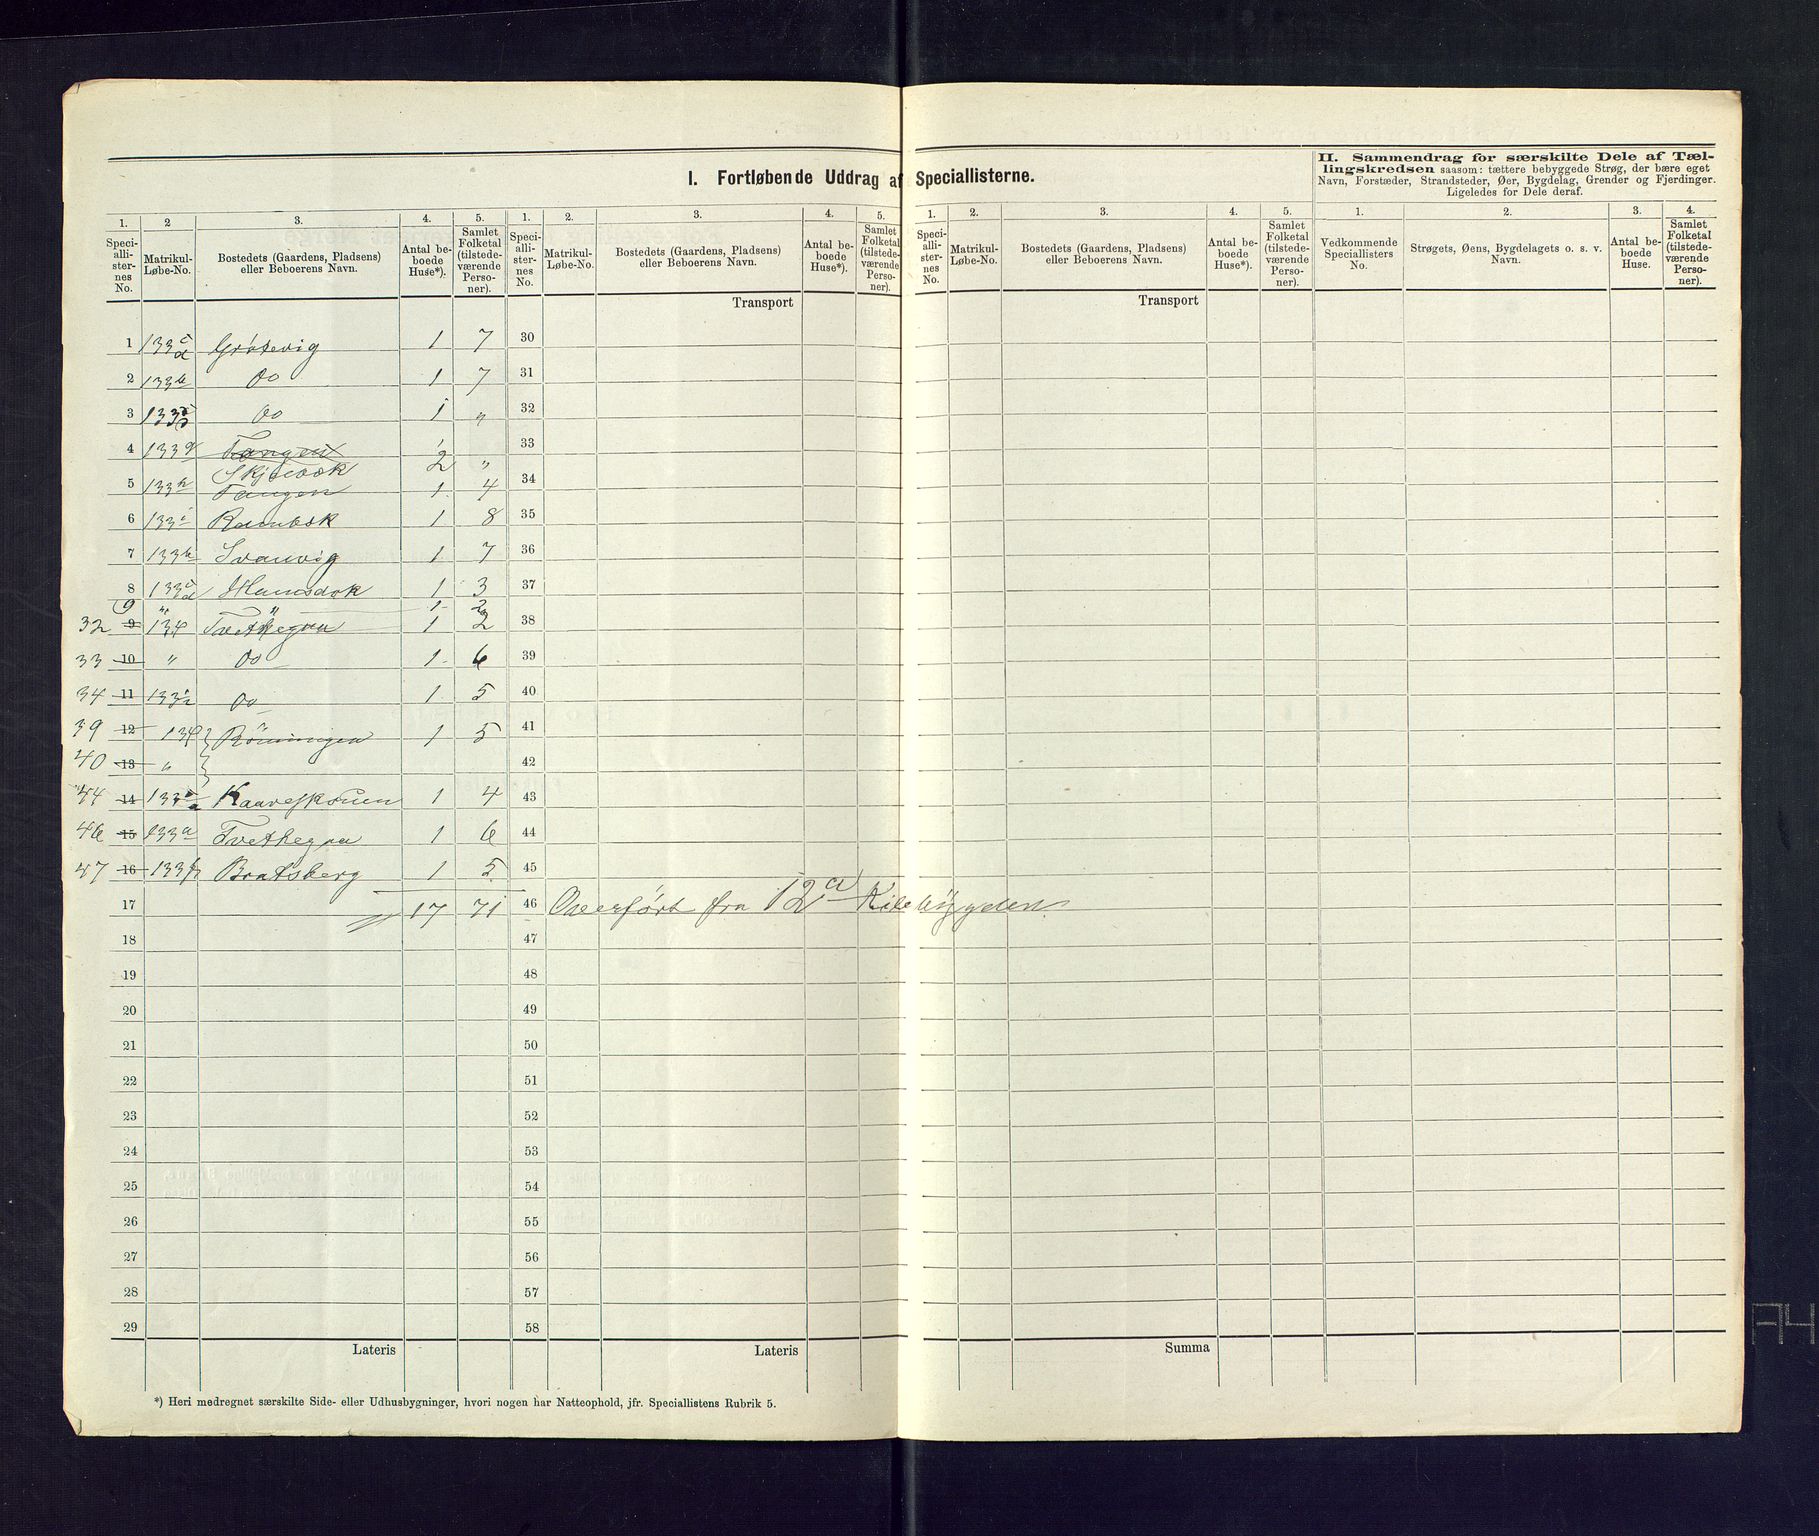 I. Fortløbende Uddrag af Speciallisterne.
II. Sammendrag for særskilte Dele af Tæl-
lingskredsen saasom: tættere bebyggede Strøg, der bære eget
Navn, Forstæder, Strandsteder, Øer, Bygdelag, Grender og Fjerdinger.
Ligeledes for Dele deraf.
1. 2 3. 4. 5. 1. 2. 3. 4. 5. 1. 2. 3. 4. 5. 1. 2. 3. 4.
Speci-
alli-
ster-
nes
No.
Matrikul-
Løbe-No.
Bostedets (Gaardens, Pladsens)
eller Beboerens Navn.
Antal be-
boede
Huse*).
Samlet
Folketal
(tilstede-
værende
Perso-
ner).
Speci-
alli-
ster-
nes
No.
Matrikul-
Løbe-No.
Bostedets (Gaardens, Pladsens)
eller Beboerens Navn.
Antal be-
boede
Huse*).
Samlet
Folketal
(tilstede-
værende
Perso-
ner).
Speci-
alli-
ster-
nes
No.
Matrikul-
Løbe-No.
Bostedets (Gaardens, Pladsens)
eller Beboerens Navn.
Antal be-
boede
Huse*).
Samlet
Folketal
(tilstede-
værende
Perso-
ner).
Vedkommende
Speciallisters
No.
Strøgets, Øens, Bygdelagets o. s. v.
Navn.
Antal be-
boede
Huse.
Samlet
Folketal
(tilstede-
værende
Perso-
ner).
Transport Transport
1 133 c d Grösevig 1 7 30
2 133 b Do 1 7 31
3 133 Do 1 " 32
4 133 g Tangen 2 " 33
Skjelbek
5 133 h Tangen 1 4 34
6 133 i Rambek 1 8 35
7 133 k Svanvig 1 7 36
8 133 c d Hamsdok 1 3 37
9 " " 1 2
32 9 134 Tvethegna 1 2 38
33 10 " Do 1 6 39
34 11 133 Do 1 5 40
39 12 134 Rönningen 1 5 41
40 13 " 42
44 14 133 a 1 4 43
46 15 133 a Tvethegna 1 6 44
47 16 133 Bratsberg 1 5 45
17 17 71 46 Overfört fra 12 a Kilebygden
18 47
19 48
20 49
21 50
22 51
23 52
24 53
25 54
26 55
27 56
28 57
29 58
Lateris Lateris Summa
*) Heri medregnet særskilte Side- eller Udhusbygninger, hvori nogen har Natteophold, jfr. Speciallistens Rubrik 5.
A4